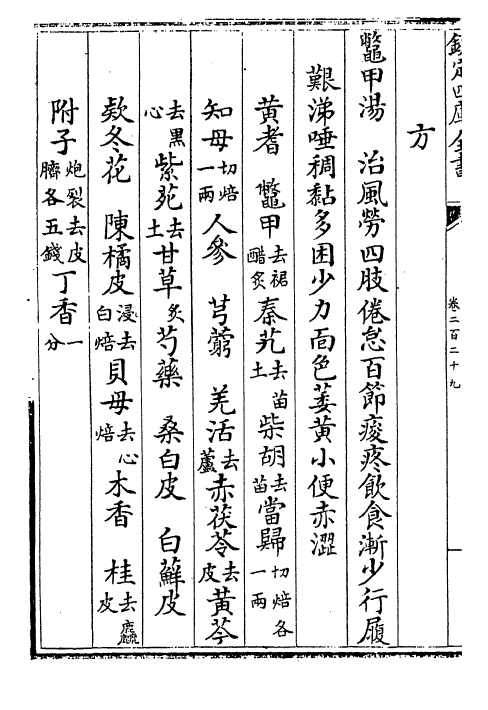 欽定四庫全書
卷二百二十九
方
鼈甲湯　治風勞四肢倦怠百節痠疼飲食漸少行履
艱涕唾稠黏多困少力面色萎黃小便赤澀
黃耆　鼈甲去裙醋炙秦艽去苗土柴胡去苗當歸切焙各一兩
知母切焙一兩人參　芎藭　羌活去蘆赤茯苓去皮黃芩
去黑心紫苑去土甘草炙芍藥　桑白皮　白蘚皮
欵冬花　陳橘皮浸去白焙貝母去心焙木香　桂去麤皮
附子炮裂去皮臍各五錢丁香一分